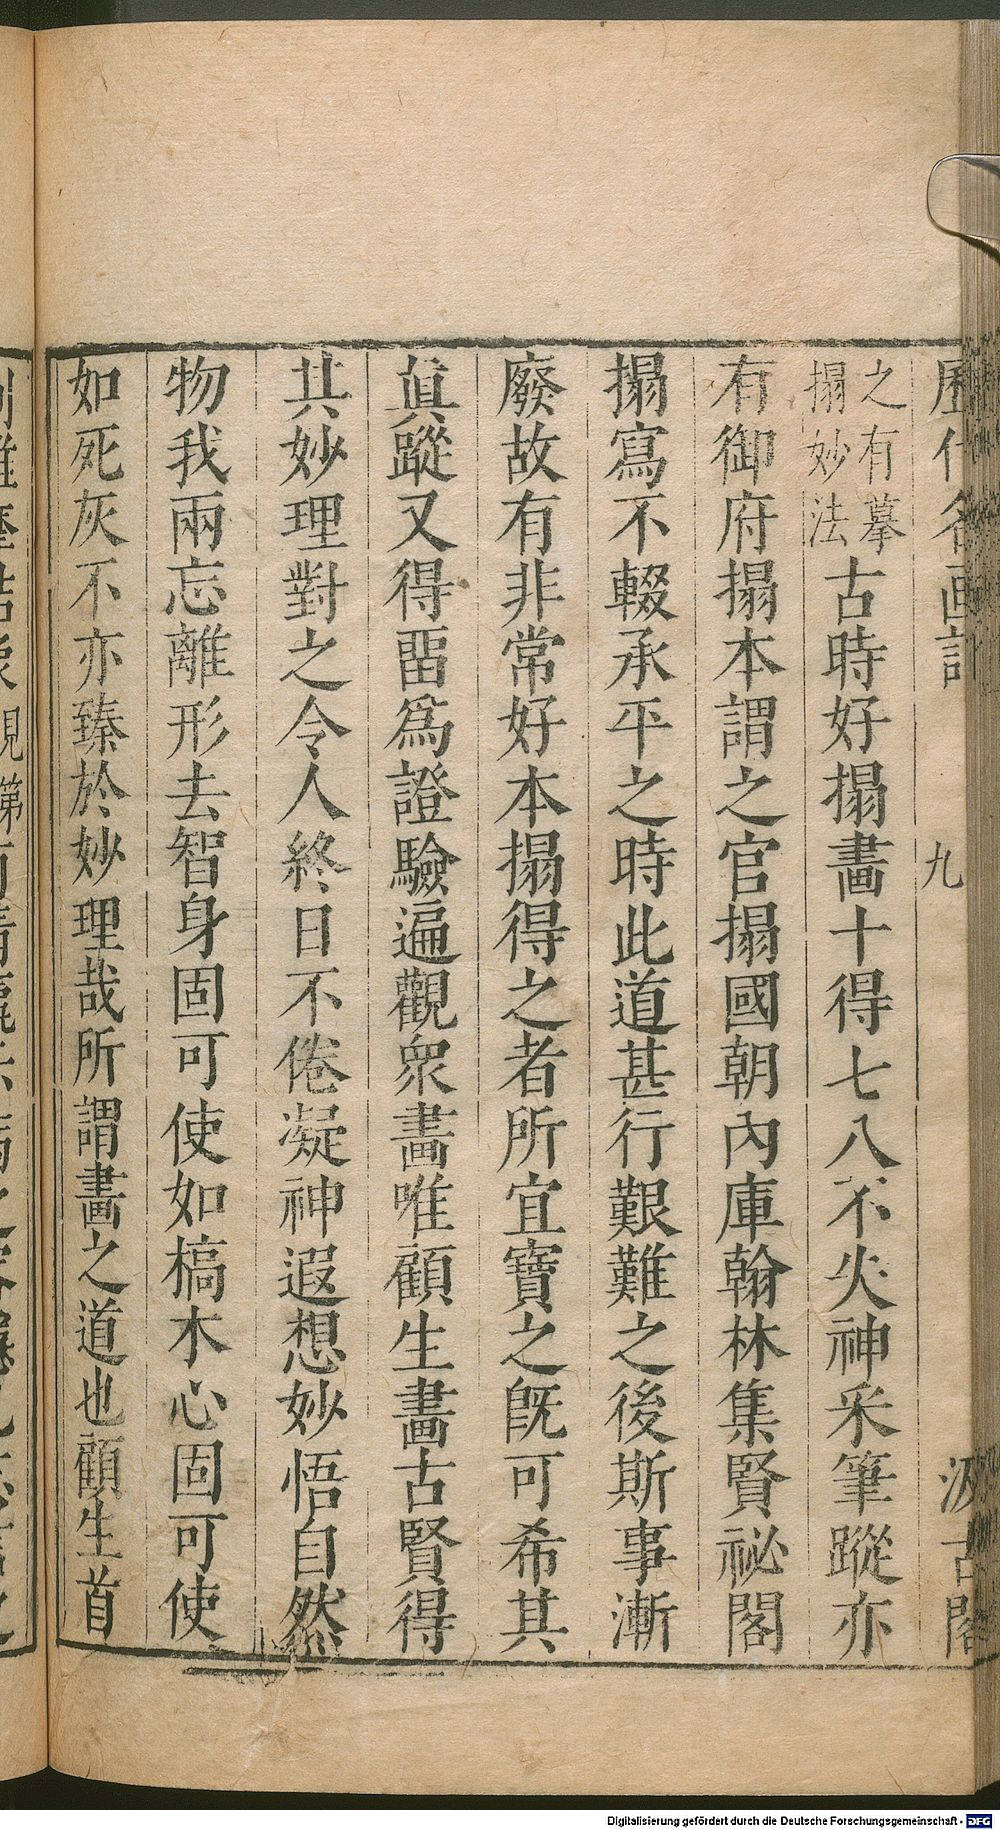 歷代名畫記 九 汲古閣
之有摹
搨妙法
古時好搨畫十得七八不失神采筆蹤亦
有御府搨本謂之官搨國朝內庫翰林集賢祕閣
搨寫不輟承平之時此道甚行艱難之後斯事漸
廢故有非常好本搨得之者所宜寶之旣可希其
眞蹤又得畱爲證驗遍觀衆畫唯顧生畫古賢得
其妙理對之令人終日不倦凝神遐想妙悟自然
物我兩忘離形去智身固可使如槁木心固可使
如死灰不亦臻於妙理哉所謂畫之道也顧生首
Digitalisierung gefördert durch die Deutsche Forschungsgemeinschaft - DFG